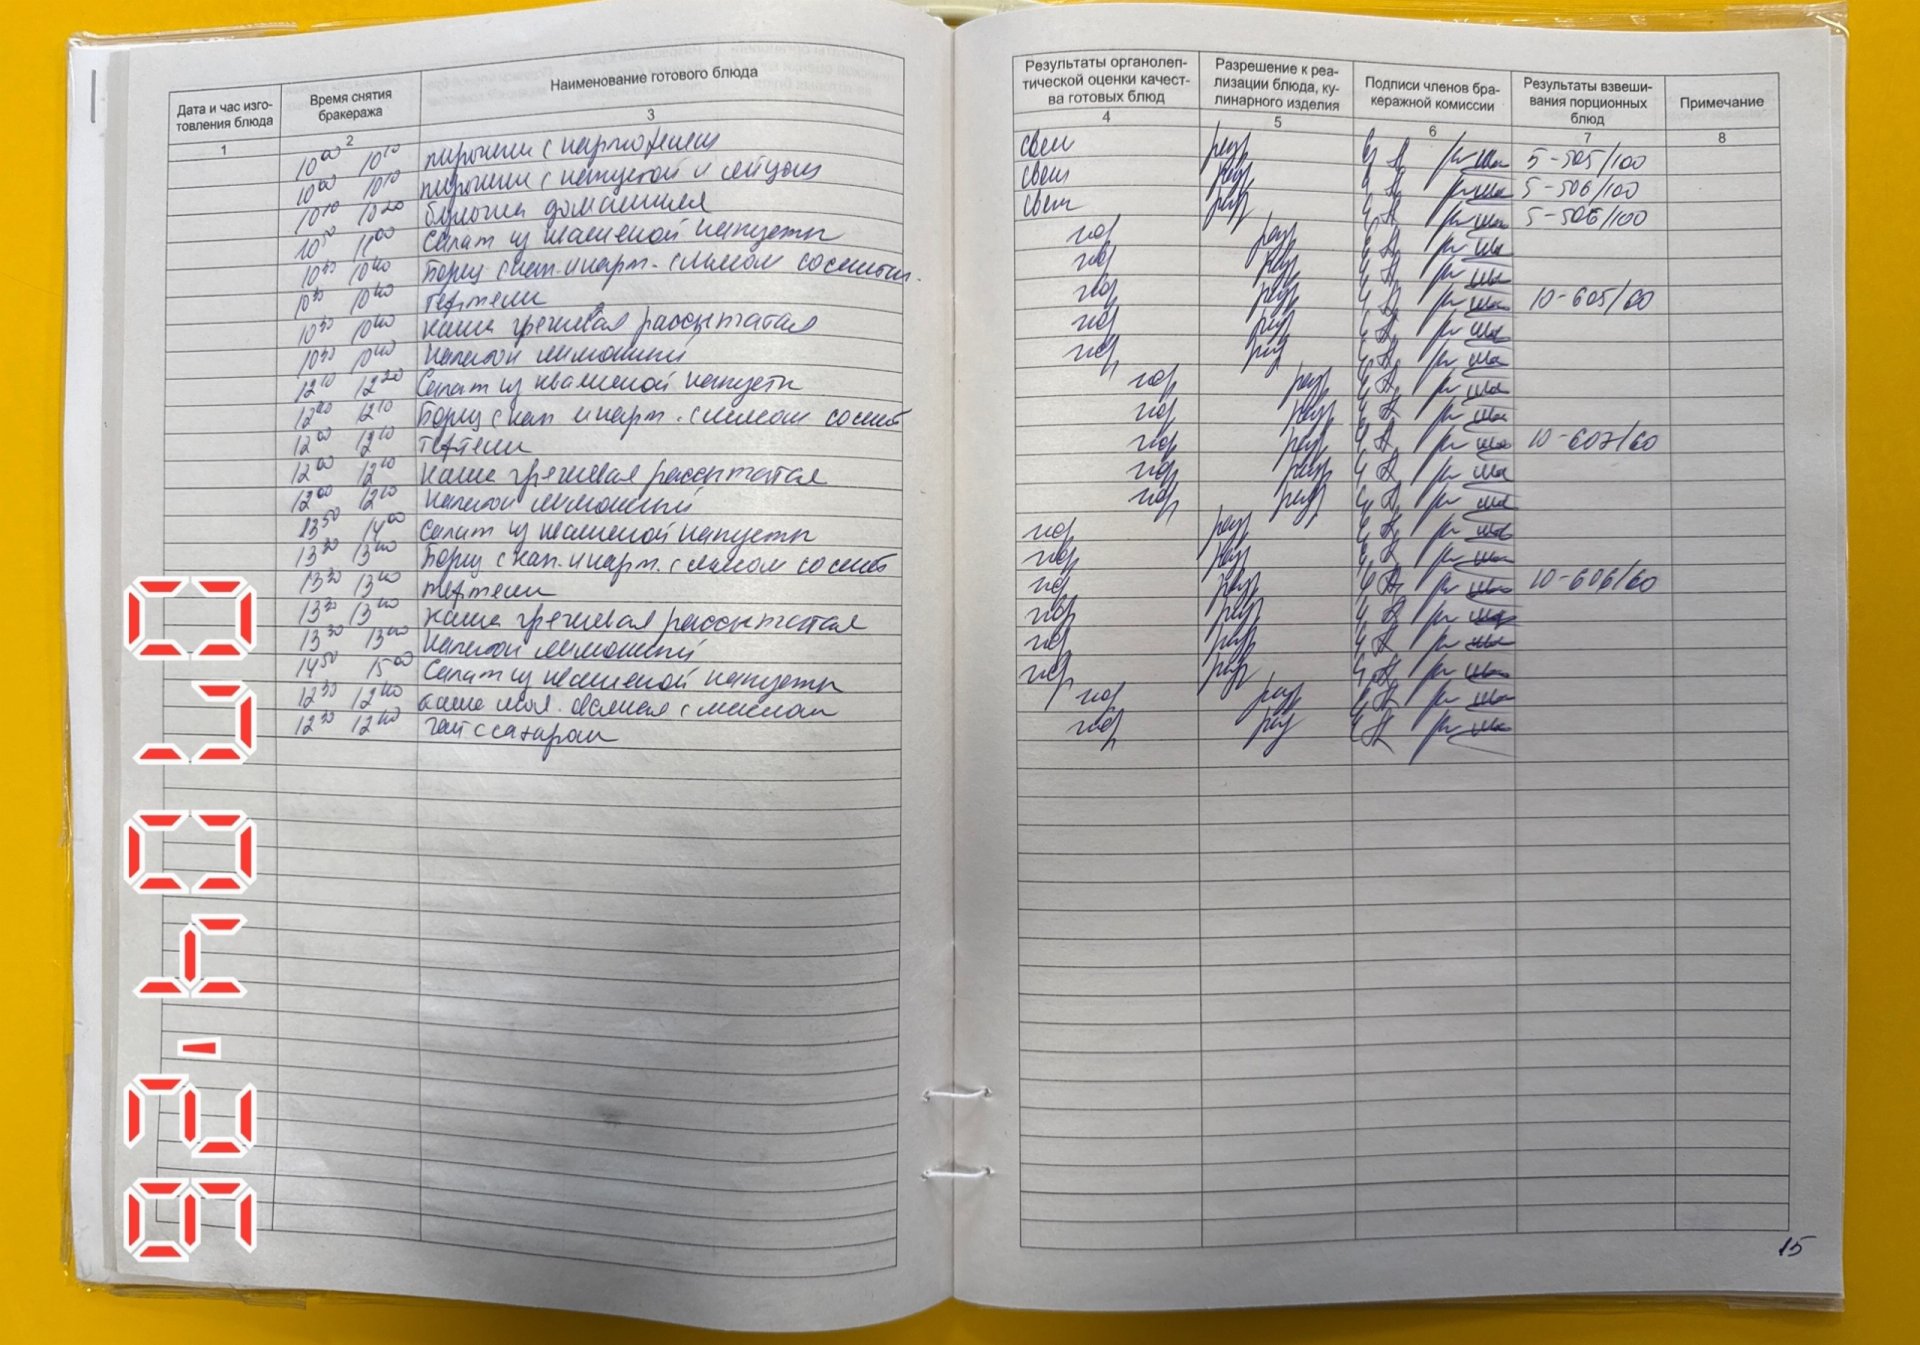 Дата и час изго-
товления блюда
Время снятия
бракеража
Наименование готового блюда
1
2
3
10⁰⁰ 10¹⁰ пирожки с картофелем
10⁰⁰ 10¹⁰ пирожки с капустой и яйцом
10¹⁰ 10²⁰ булочка домашняя
10⁵⁰ 11⁰⁰ Салат из квашеной капусты
10³⁰ 10⁴⁰ Борщ с кап. и карт. с мясом со сметан.
10³⁰ 10⁴⁰ тефтели
10³⁰ 10⁴⁰ каша гречневая рассыпчатая
10³⁰ 10⁴⁰ напиток лимонный
12¹⁰ 12²⁰ Салат из квашеной капусты
12⁰⁰ 12¹⁰ Борщ с кап. и карт. с мясом со смет
12⁰⁰ 12¹⁰ тефтели
12⁰⁰ 12¹⁰ каша гречневая рассыпчатая
12⁰⁰ 12¹⁰ напиток лимонный
13⁵⁰ 14⁰⁰ Салат из квашеной капусты
13³⁰ 13⁴⁰ Борщ с кап. и карт. с мясом со смет
13³⁰ 13⁴⁰ тефтели
13³⁰ 13⁴⁰ каша гречневая рассыпчатая
13³⁰ 13⁴⁰ напиток лимонный
14⁵⁰ 15⁰⁰ Салат из квашеной капусты
12³⁰ 12⁴⁰ каша мол. овсяная с маслом
12³⁰ 12⁴⁰ чай с сахаром
0704 '26
Результаты органолеп-
тической оценки качест-
ва готовых блюд
Разрешение к реа-
лизации блюда, ку-
линарного изделия
Подписи членов бра-
керажной комиссии
Результаты взвеши-
вания порционных
блюд
Примечание
4
5
6
7
8
свеж разр 5-505/100
свеж разр 5-506/100
свеж разр 5-506/100
гор разр
гор разр
гор разр 10-605/60
гор разр
гор разр
гор разр
гор разр
гор разр 10-607/60
гор разр
гор разр
гор разр
гор разр
гор разр 10-606/60
гор разр
гор разр
гор разр
гор разр
гор разр
15